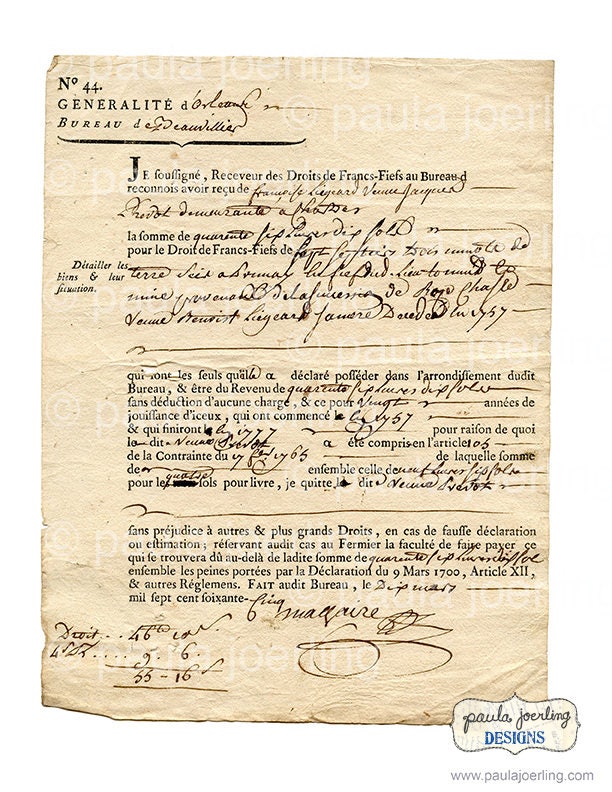 © paula joerling
Nº 44.
GENERALITÉ d'Orleans
BUREAU de Beauvillier
JE soussigné, Receveur des Droits de Francs-Fiefs au Bureau d
reconnois avoir reçu de françoise Liegeard Veuve Jacques
Prevot demeurante à
la somme de quarente six livres dix sols
pour le Droit de Francs-Fiefs de sept septiers trois de
Détailler les
biens & leur
situation.
terre
mine de
Veuve Benoist Liegeard Decedé En 1757
qui sont les seuls qu'elle a déclaré posséder dans l'arrondissement dudit
Bureau, & être du Revenu de quarente six livres dix sols
sans déduction d'aucune charge, & ce pour Vingt années de
jouissance d'iceux, qui ont commencé le En 1757
& qui finiront le En 1777 pour raison de quoi
la dit Veuve Prevot a été compris en l'article 105
de la Contrainte du 17 1765 de laquelle somme
de ensemble celle de neuf livres six sols
pour les quatre sols pour livre, je quitte la dit Veuve Prevot
sans préjudice à autres & plus grands Droits, en cas de fausse déclaration
ou estimation; réservant audit cas au Fermier la faculté de faire payer ce
qui se trouvera dû au-delà de ladite somme de quarente six livres dix sols
ensemble les peines portées par la Déclaration du 9 Mars 1700, Article XII,
& autres Réglemens. FAIT audit Bureau, le Dix mars
mil sept cent soixante-Cinq
Droit . . . 46 10s
4s . . . . 9. 6.
55 - 16s
paula joerling
DESIGNS
www.paulajoerling.com